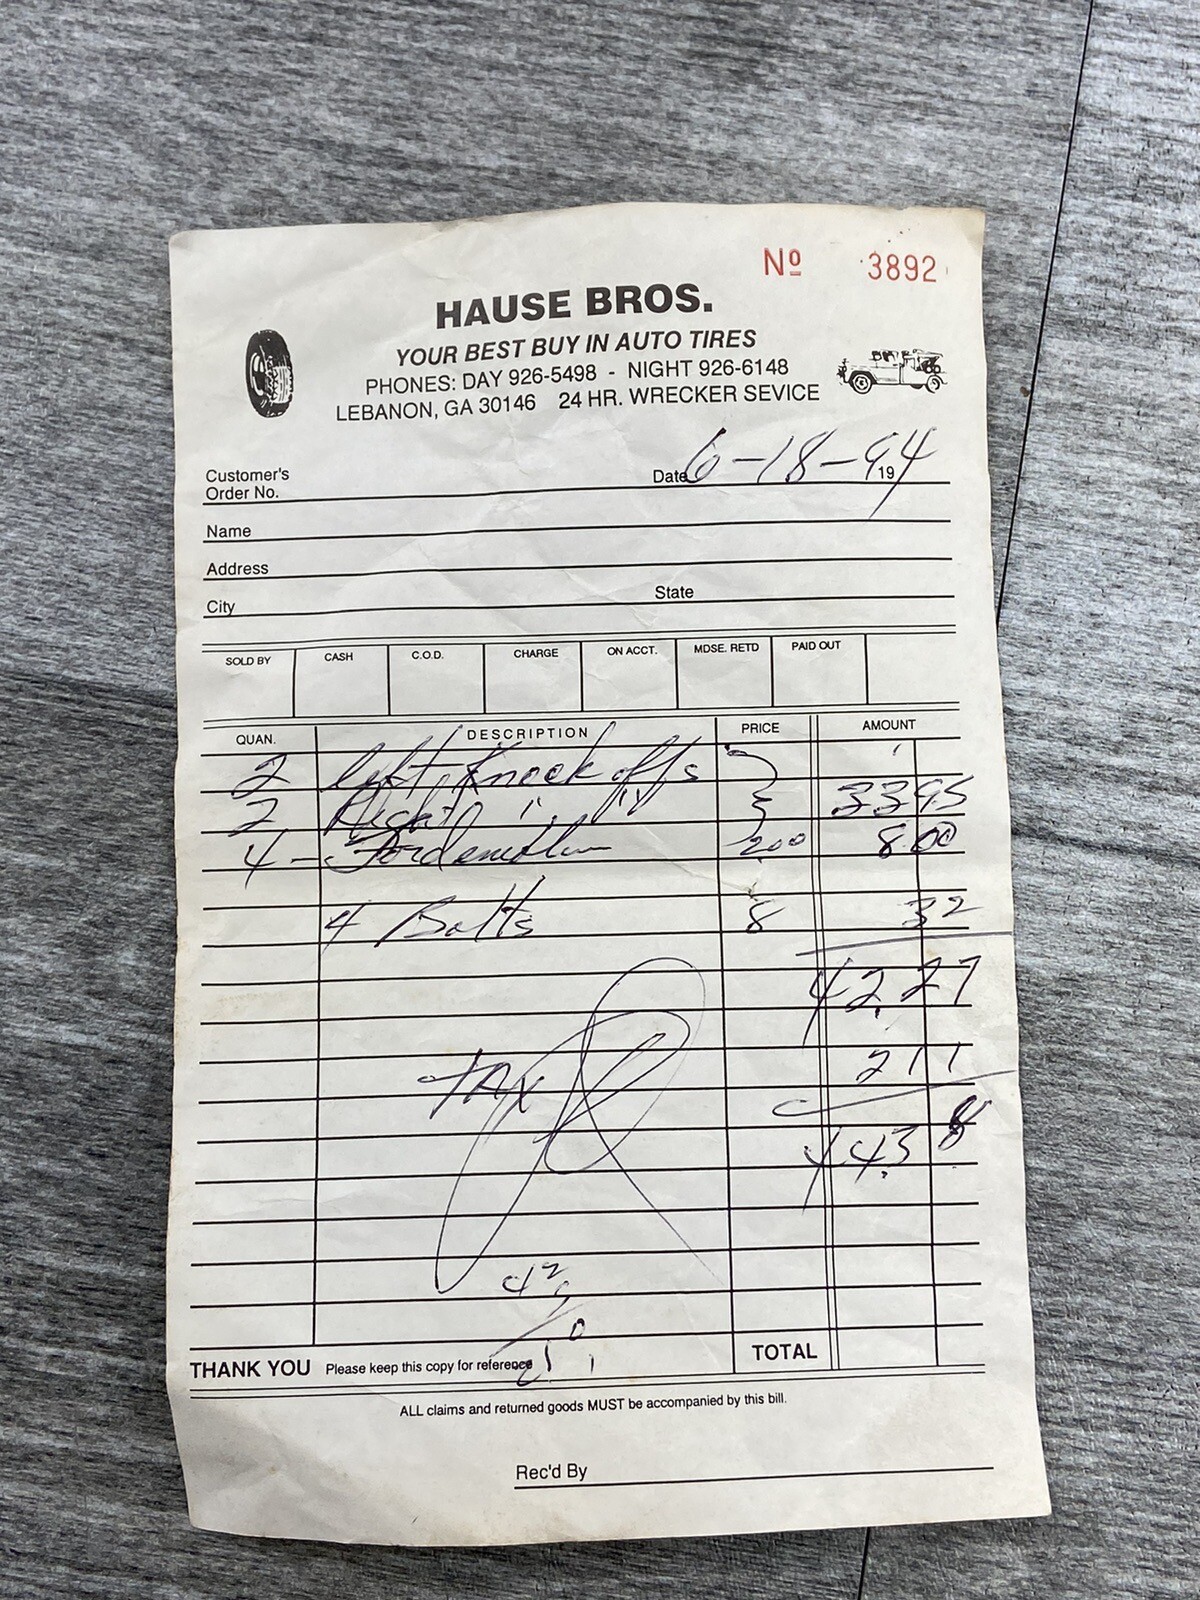 Nº 3892
HAUSE BROS.
YOUR BEST BUY IN AUTO TIRES
PHONES: DAY 926-5498 - NIGHT 926-6148
LEBANON, GA 30146 24 HR. WRECKER SEVICE
Customer's
Order No.
Date 6-18-94 19
Name
Address
City State
SOLD BY CASH C.O.D. CHARGE ON ACCT. MDSE. RETD PAID OUT
QUAN. DESCRIPTION PRICE AMOUNT
2 left Knock offs
2 Right " " 3395
4 - 200 8.00
4 Bolts 8 32
42.27
TAX 211
44.38
42
THANK YOU Please keep this copy for reference TOTAL
ALL claims and returned goods MUST be accompanied by this bill.
Rec'd By